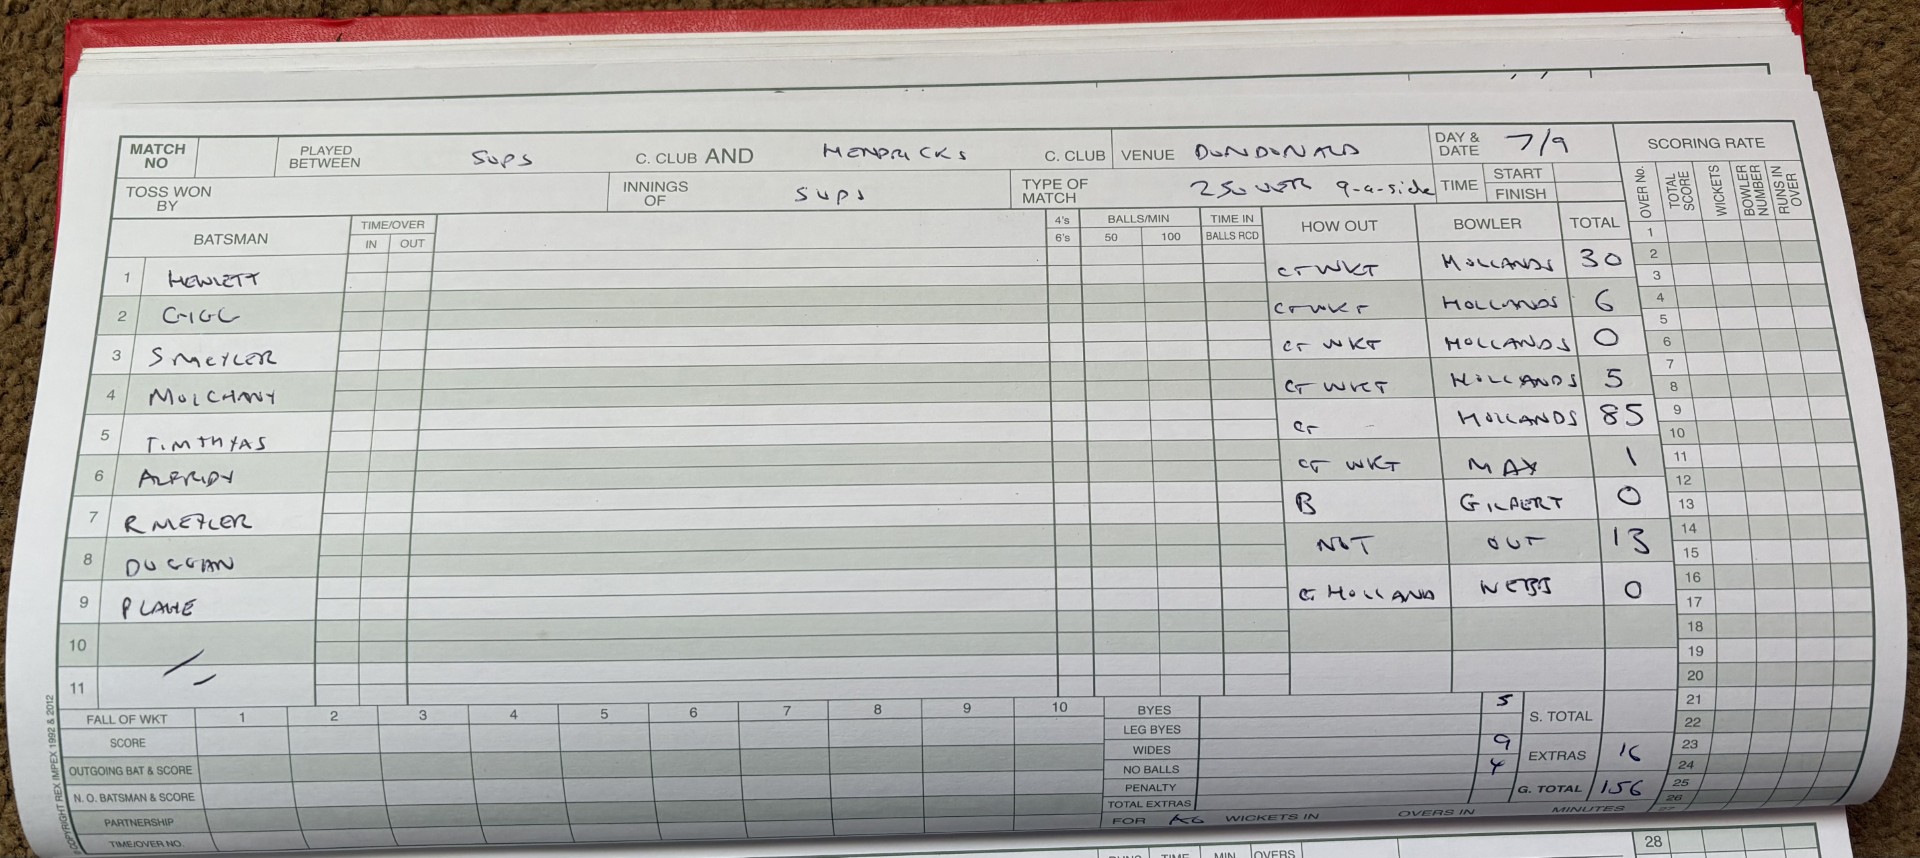 MATCH NO PLAYED BETWEEN SUPS C. CLUB AND HENDRICKS C. CLUB VENUE DUNDONALD DAY & DATE 7/9 SCORING RATE
TOSS WON BY INNINGS OF SUPS TYPE OF MATCH 25 OVER 9-a-side TIME START FINISH
OVER No. TOTAL SCORE WICKETS BOWLER NUMBER RUNS IN OVER
BATSMAN TIME/OVER IN OUT 4's 6's BALLS/MIN 50 100 TIME IN BALLS RCD HOW OUT BOWLER TOTAL
1 HEWLETT CT WKT HOLLANDS 30
2 GIGG CT WKT HOLLANDS 6
3 S MEYLER CT WKT HOLLANDS 0
4 MOLCHANY CT WKT HOLLANDS 5
5 T. MTHYAS CT HOLLANDS 85
6 ALFRIDY CT WKT MAX 1
7 R MEYLER B GILBERT 0
8 DUGGAN NOT OUT 13
9 P LAWE CT HOLLAND WEBB 0
10
11
1
2
3
4
5
6
7
8
9
10
11
12
13
14
15
16
17
18
19
20
21
22
23
24
25
26
27
FALL OF WKT 1 2 3 4 5 6 7 8 9 10 BYES 5 S. TOTAL
SCORE LEG BYES
WIDES 9 EXTRAS 16
OUTGOING BAT & SCORE NO BALLS 4
N. O. BATSMAN & SCORE PENALTY G. TOTAL 156
PARTNERSHIP TOTAL EXTRAS
TIME/OVER NO. FOR WICKETS IN OVERS IN MINUTES
© COPYRIGHT REX IMPEX 1992 & 2012
RUNS TIME MIN OVERS 28